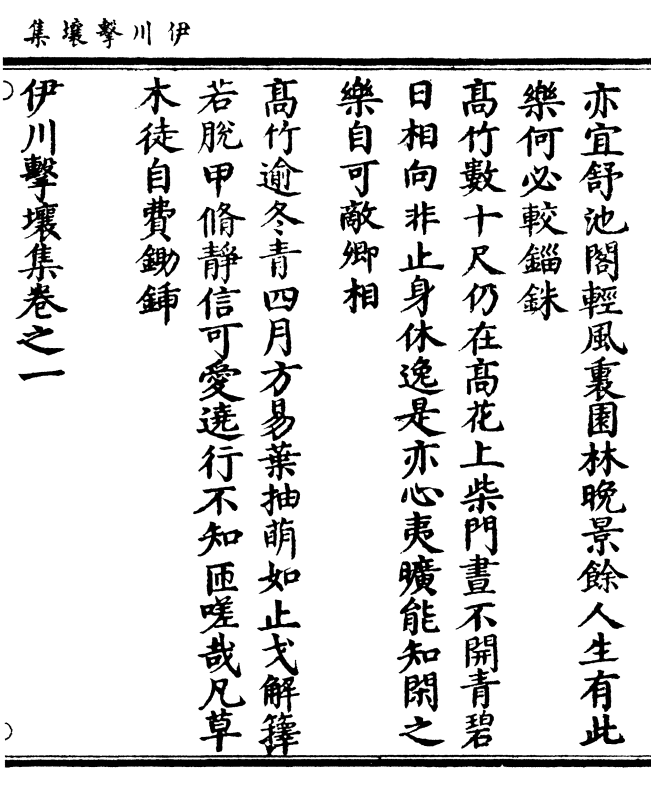 伊川擊壤集
亦宜舒池閣輕風裏園林晩景餘人生有此
樂何必較錙銖
髙竹數十尺仍在髙花上柴門晝不開青碧
日相向非止身休逸是亦心夷曠能知閑之
樂自可敵卿相
髙竹逾冬青四月方易葉抽萌如止戈解籜
若脫甲脩靜信可愛遶行不知匝嗟哉凡草
木徒自費鋤鍤
伊川擊壤集卷之一